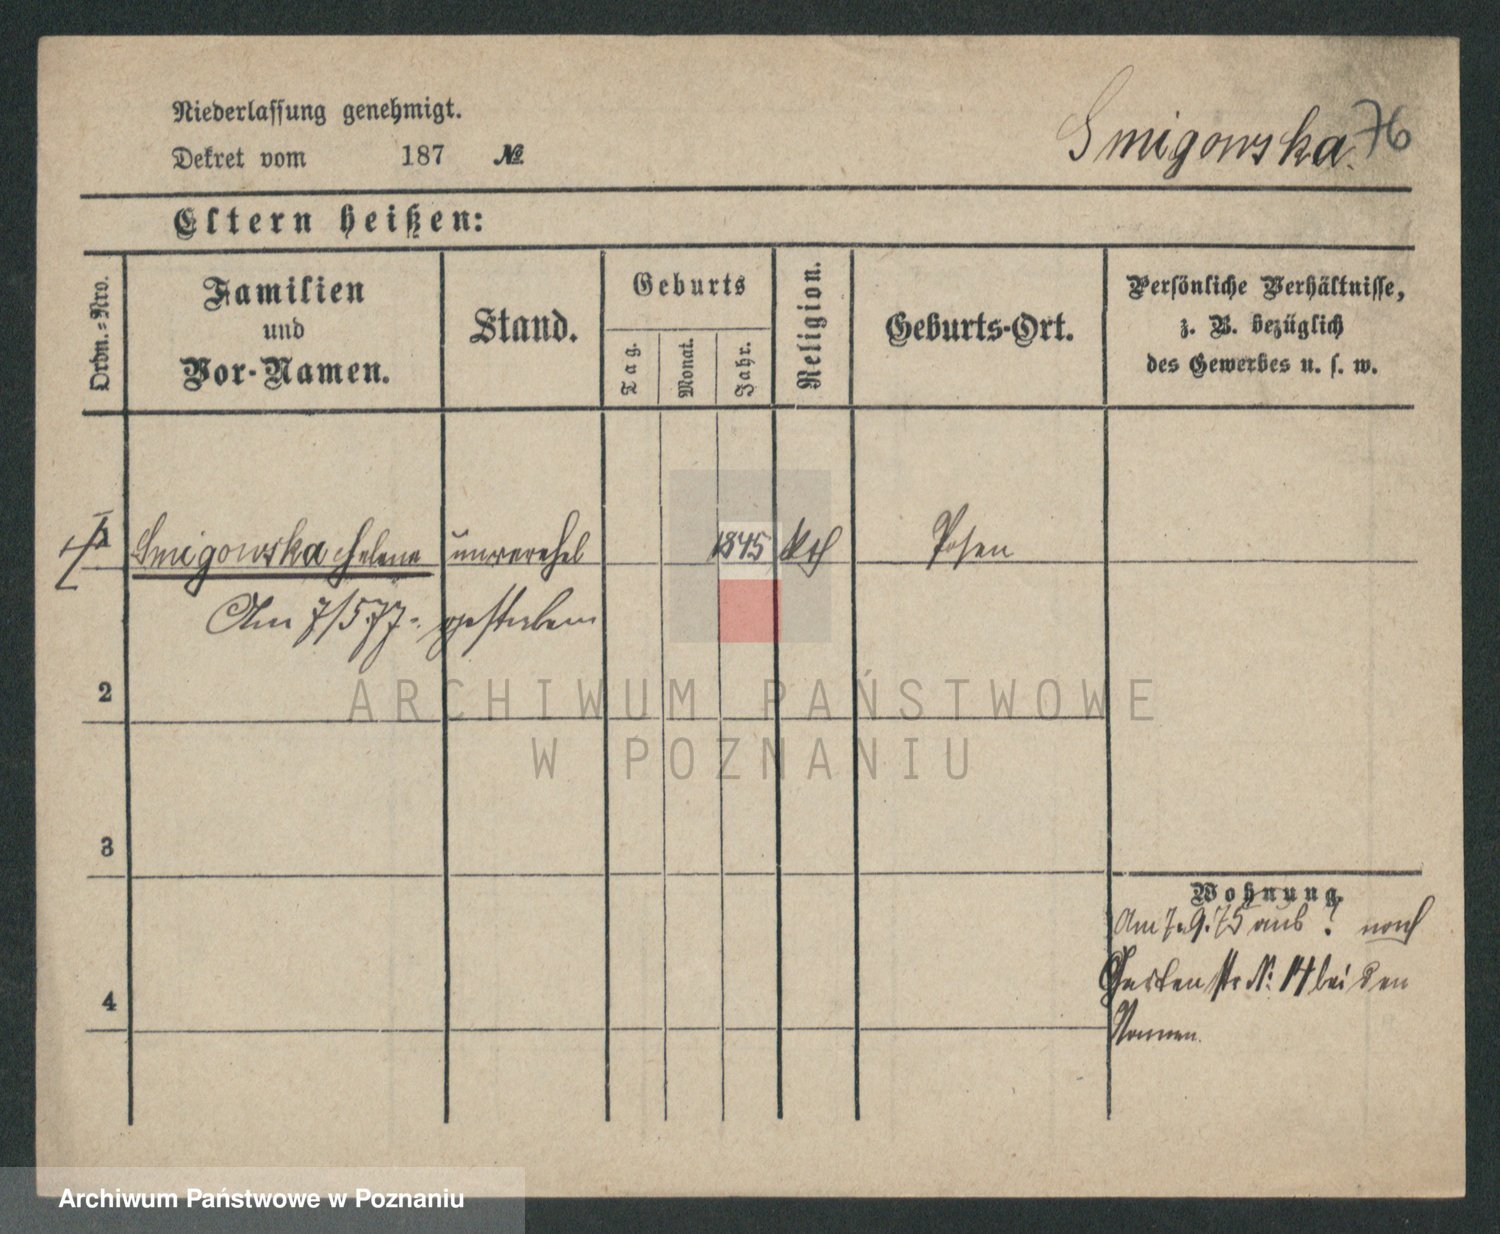 Niederlassung genehmigt.
Dekret vom 187 №
Smigowska 76
Eltern heißen:
Ordn.=Nro.
Familien
und
Vor-Namen.
Stand.
Geburts
Tag.
Monat.
Jahr.
Religion.
Geburts-Ort.
Persönliche Verhältnisse,
z. B. bezüglich
des Gewerbes u. s. w.
Smigowska Helene unverehel 1845 kth Posen
Am 7/5 77. gestorben
2
3
4
Wohnung.
Am 7.9.75 aus ? nach
Gartenstr № 14 bei den
Nonnen.
ARCHIWUM PAŃSTWOWE
W POZNANIU
Archiwum Państwowe w Poznaniu